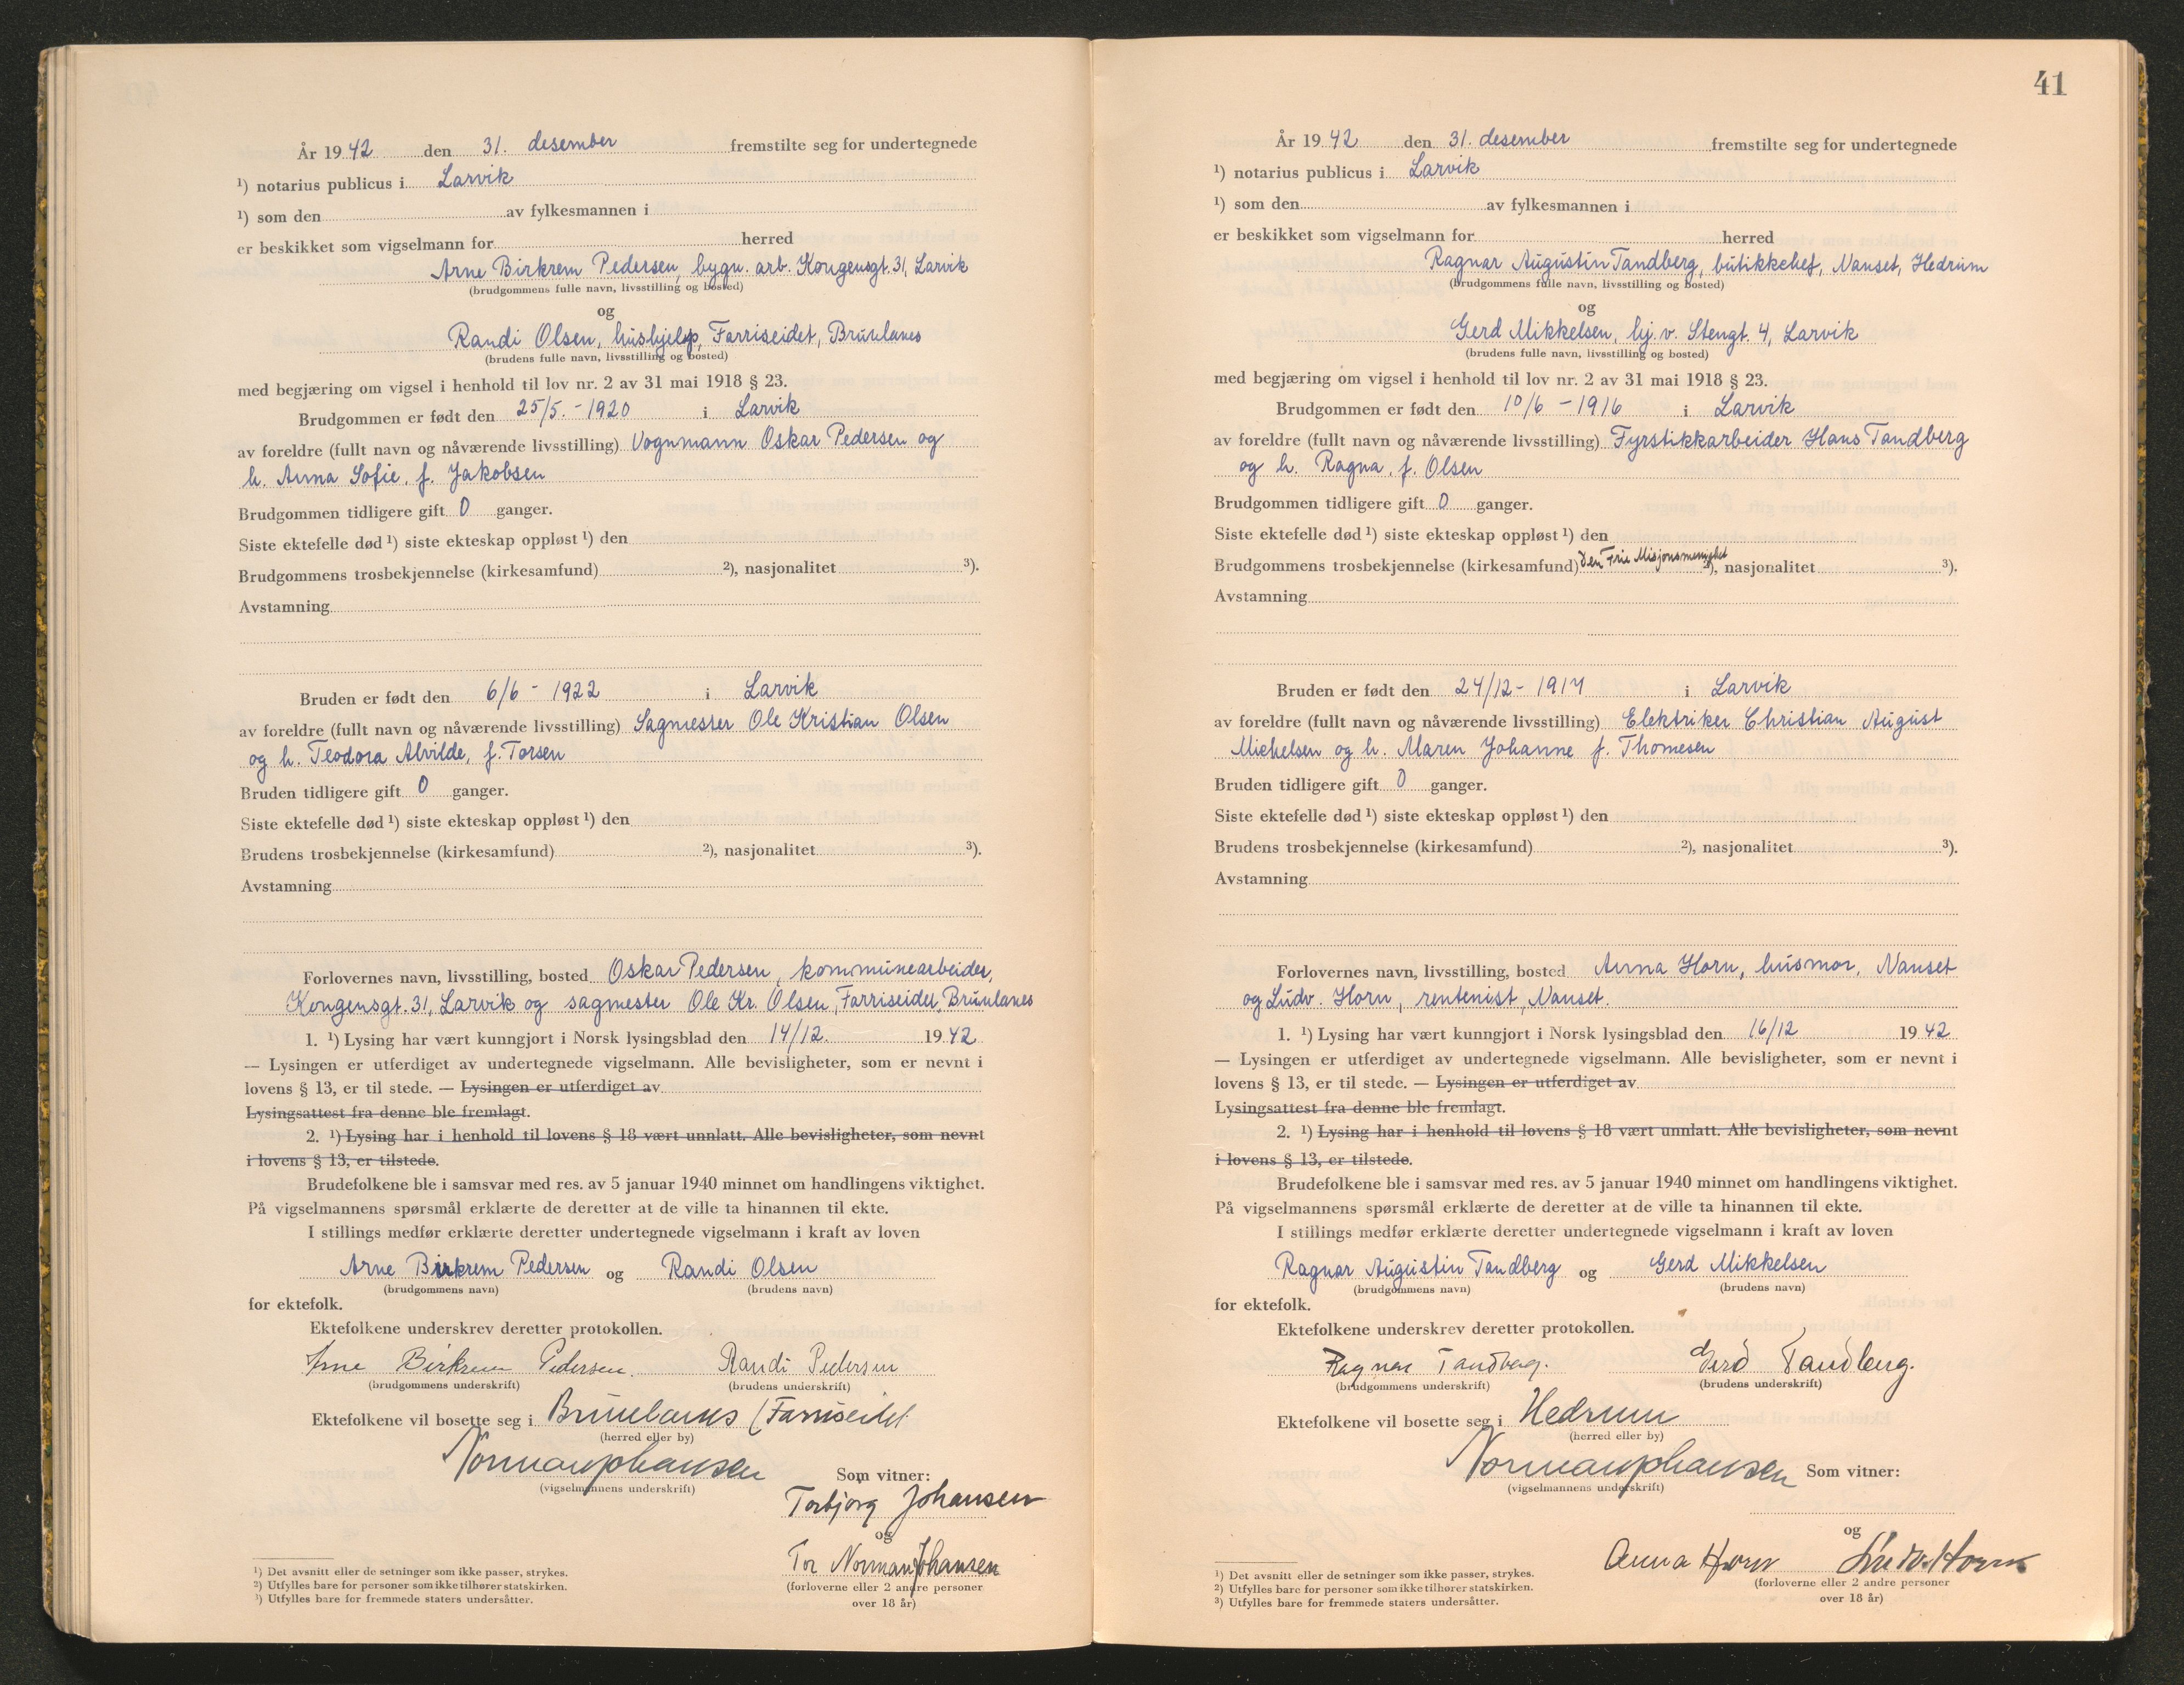 År 1942 den 31. desember fremstilte seg for undertegnede
¹) notarius publicus i Larvik
¹) som den av fylkesmannen i
er beskikket som vigselmann for herred
Arne Birkrem Pedersen, bygn. arb. Kongensgt. 31, Larvik
(brudgommens fulle navn, livsstilling og bosted)
og
Randi Olsen, hushjelp, Farriseidet, Brunlanes
(brudens fulle navn, livsstilling og bosted)
med begjæring om vigsel i henhold til lov nr. 2 av 31 mai 1918 § 23.
Brudgommen er født den 25/5. - 1920 i Larvik
av foreldre (fullt navn og nåværende livsstilling) Vognmann Oskar Pedersen og
h. Anna Sofie, f. Jakobsen
Brudgommen tidligere gift 0 ganger.
Siste ektefelle død ¹) siste ekteskap oppløst ¹) den
Brudgommens trosbekjennelse (kirkesamfund) ²), nasjonalitet ³).
Avstamning
Bruden er født den 6/6 - 1922 i Larvik
av foreldre (fullt navn og nåværende livsstilling) Sagmester Ole Kristian Olsen
og h. Teodora Alvilde, f. Torsen
Bruden tidligere gift 0 ganger.
Siste ektefelle død ¹) siste ekteskap oppløst ¹) den
Brudens trosbekjennelse (kirkesamfund) ²), nasjonalitet ³).
Avstamning
Forlovernes navn, livsstilling, bosted Oskar Pedersen, kommunearbeider,
Kongensgt. 31, Larvik og sagmester Ole Kr. Olsen, Farriseidet, Brunlanes
1. ¹) Lysing har vært kunngjort i Norsk lysingsblad den 14/12. 1942
— Lysingen er utferdiget av undertegnede vigselmann. Alle bevisligheter, som er nevnt i
lovens § 13, er til stede. — Lysingen er utferdiget av
Lysingsattest fra denne ble fremlagt.
2. ¹) Lysing har i henhold til lovens § 18 vært unnlatt. Alle bevisligheter, som nevnt
i lovens § 13, er tilstede.
Brudefolkene ble i samsvar med res. av 5 januar 1940 minnet om handlingens viktighet.
På vigselmannens spørsmål erklærte de deretter at de ville ta hinannen til ekte.
I stillings medfør erklærte deretter undertegnede vigselmann i kraft av loven
Arne Birkrem Pedersen og Randi Olsen
(brudgommens navn) (brudens navn)
for ektefolk.
Ektefolkene underskrev deretter protokollen.
Arne Birkrem Pedersen. Randi Pedersen
(brudgommens underskrift) (brudens underskrift)
Ektefolkene vil bosette seg i Brunlanes (Farriseidet
(herred eller by)
Norman Johansen
(vigselmannens underskrift) Som vitner:
Torbjørg Johansen
og
Tor Norman Johansen
(forloverne eller 2 andre personer
over 18 år)
¹) Det avsnitt eller de setninger som ikke passer, strykes.
²) Utfylles bare for personer som ikke tilhører statskirken.
³) Utfylles bare for fremmede staters undersåtter.
41
År 1942 den 31. desember fremstilte seg for undertegnede
¹) notarius publicus i Larvik
¹) som den av fylkesmannen i
er beskikket som vigselmann for herred
Ragnar Augustin Tandberg, butikkchef, Nanset, Hedrum
(brudgommens fulle navn, livsstilling og bosted)
og
Gerd Mikkelsen, hj. v. Stengt. 4, Larvik
(brudens fulle navn, livsstilling og bosted)
med begjæring om vigsel i henhold til lov nr. 2 av 31 mai 1918 § 23.
Brudgommen er født den 10/6 - 1916 i Larvik
av foreldre (fullt navn og nåværende livsstilling) Fyrstikkarbeider Hans Tandberg
og h. Ragna, f. Olsen
Brudgommen tidligere gift 0 ganger.
Siste ektefelle død ¹) siste ekteskap oppløst ¹) den
Brudgommens trosbekjennelse (kirkesamfund) Den Frie Misjonsmenighet ²), nasjonalitet ³).
Avstamning
Bruden er født den 24/12 - 1917 i Larvik
av foreldre (fullt navn og nåværende livsstilling) Elektriker Christian August
Michelsen og h. Maren Johanne f. Thomesen
Bruden tidligere gift 0 ganger.
Siste ektefelle død ¹) siste ekteskap oppløst ¹) den
Brudens trosbekjennelse (kirkesamfund) ²), nasjonalitet ³).
Avstamning
Forlovernes navn, livsstilling, bosted Anna Horn, husmor, Nanset
og Ludv. Horn, rentenist, Nanset.
1. ¹) Lysing har vært kunngjort i Norsk lysingsblad den 16/12 1942
— Lysingen er utferdiget av undertegnede vigselmann. Alle bevisligheter, som er nevnt i
lovens § 13, er til stede. — Lysingen er utferdiget av
Lysingsattest fra denne ble fremlagt.
2. ¹) Lysing har i henhold til lovens § 18 vært unnlatt. Alle bevisligheter, som nevnt
i lovens § 13, er tilstede.
Brudefolkene ble i samsvar med res. av 5 januar 1940 minnet om handlingens viktighet.
På vigselmannens spørsmål erklærte de deretter at de ville ta hinannen til ekte.
I stillings medfør erklærte deretter undertegnede vigselmann i kraft av loven
Ragnar Augustin Tandberg og Gerd Mikkelsen
(brudgommens navn) (brudens navn)
for ektefolk.
Ektefolkene underskrev deretter protokollen.
Ragnar Tandberg. Gerd Tandberg.
(brudgommens underskrift) (brudens underskrift)
Ektefolkene vil bosette seg i Hedrum
(herred eller by)
Norman Johansen Som vitner:
(vigselmannens underskrift)
og
Anna Horn Ludv. Horn
(forloverne eller 2 andre personer
over 18 år)
¹) Det avsnitt eller de setninger som ikke passer, strykes.
²) Utfylles bare for personer som ikke tilhører statskirken.
³) Utfylles bare for fremmede staters undersåtter.